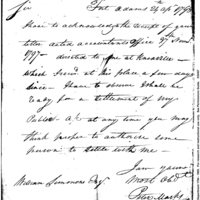 Sir Fort Adams 24 Ap 1798
I have to acknowledge the receipt of your
letter dated accountants office 27 Novr
1797 - directed to me at Knoxville -
which I recd at this place a few days
since - I have to observe I shall be
ready for a settlement of my
Public A/c at any time you may
think proper to authorise some
person to settle with me
I am yours
most Obdt
William Simmons Esqr